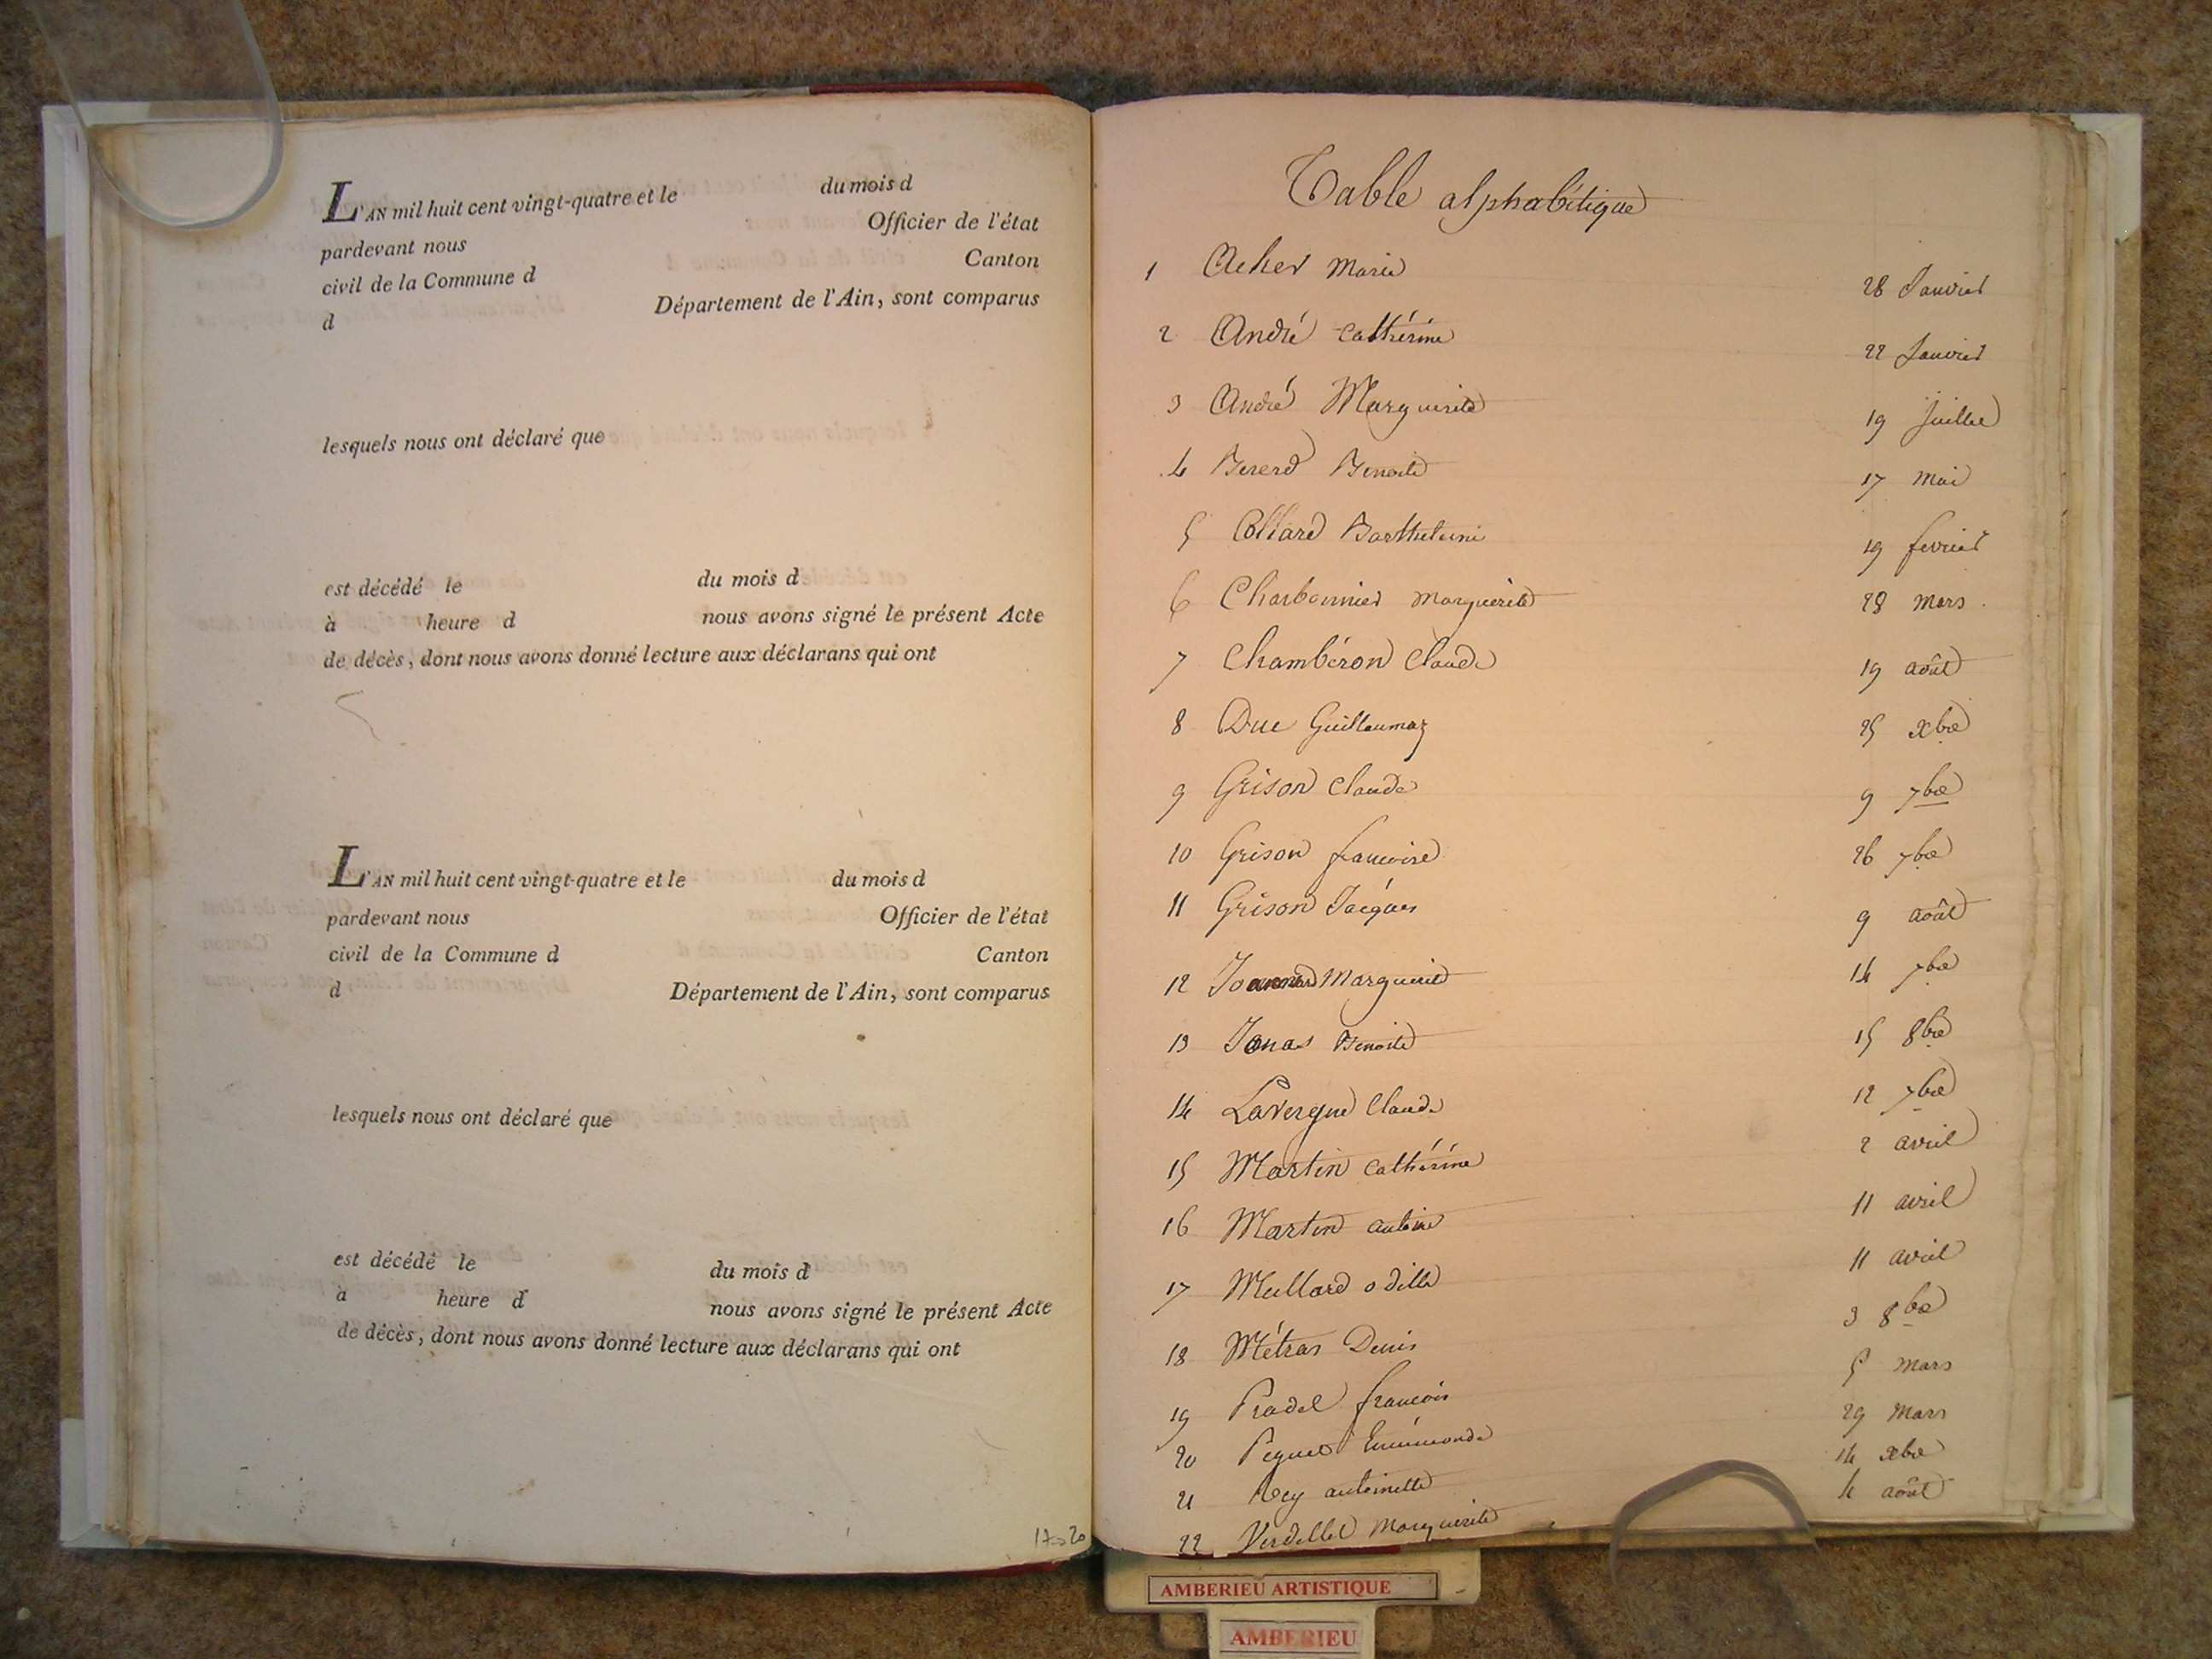 L'AN mil huit cent vingt-quatre et le du mois d
pardevant nous Officier de l'état
civil de la Commune d Canton
d Département de l'Ain, sont comparus
lesquels nous ont déclaré que
est décédé le du mois d
à heure d nous avons signé le présent Acte
de décès, dont nous avons donné lecture aux déclarans qui ont
L'AN mil huit cent vingt-quatre et le du mois d
pardevant nous Officier de l'état
civil de la Commune d Canton
d Département de l'Ain, sont comparus
lesquels nous ont déclaré que
est décédé le du mois d
à heure d nous avons signé le présent Acte
de décès, dont nous avons donné lecture aux déclarans qui ont
17-20
Table alphabétique
1 Acher Marie 28 Janvier
2 André Cathérine 22 Janvier
3 André Marguerite 19 juillet
4 Bererd Benoite 17 mai
5 Collard Barthelemi 19 fevrier
6 Charbonnier Marguerite 28 mars
7 Chambéron Claude 19 août
8 Duc Guillaumaz 25 xbre
9 Grison Claude 9 7bre
10 Grison francoise 26 7bre
11 Grison Jacques 9 août
12 Marguerite 14 7bre
13 Jonas Benoite 15 8bre
14 Lavergne Claude 12 7bre
15 Martin Cathérine 2 avril
16 Martin antoine 11 avril
17 Mullard odille 11 avril
18 Métras Denis 3 8bre
19 Pradel francois 5 mars
20 Péguet 29 Mars
21 Rey antoinette 14 xbre
22 Verdellet Marguerite 4 août
AMBERIEU ARTISTIQUE
AMBERIEU